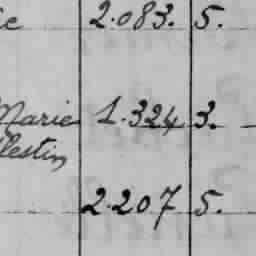 ie 2.083. 5.
Marie 1.324 3.
llestin
2.207 5.